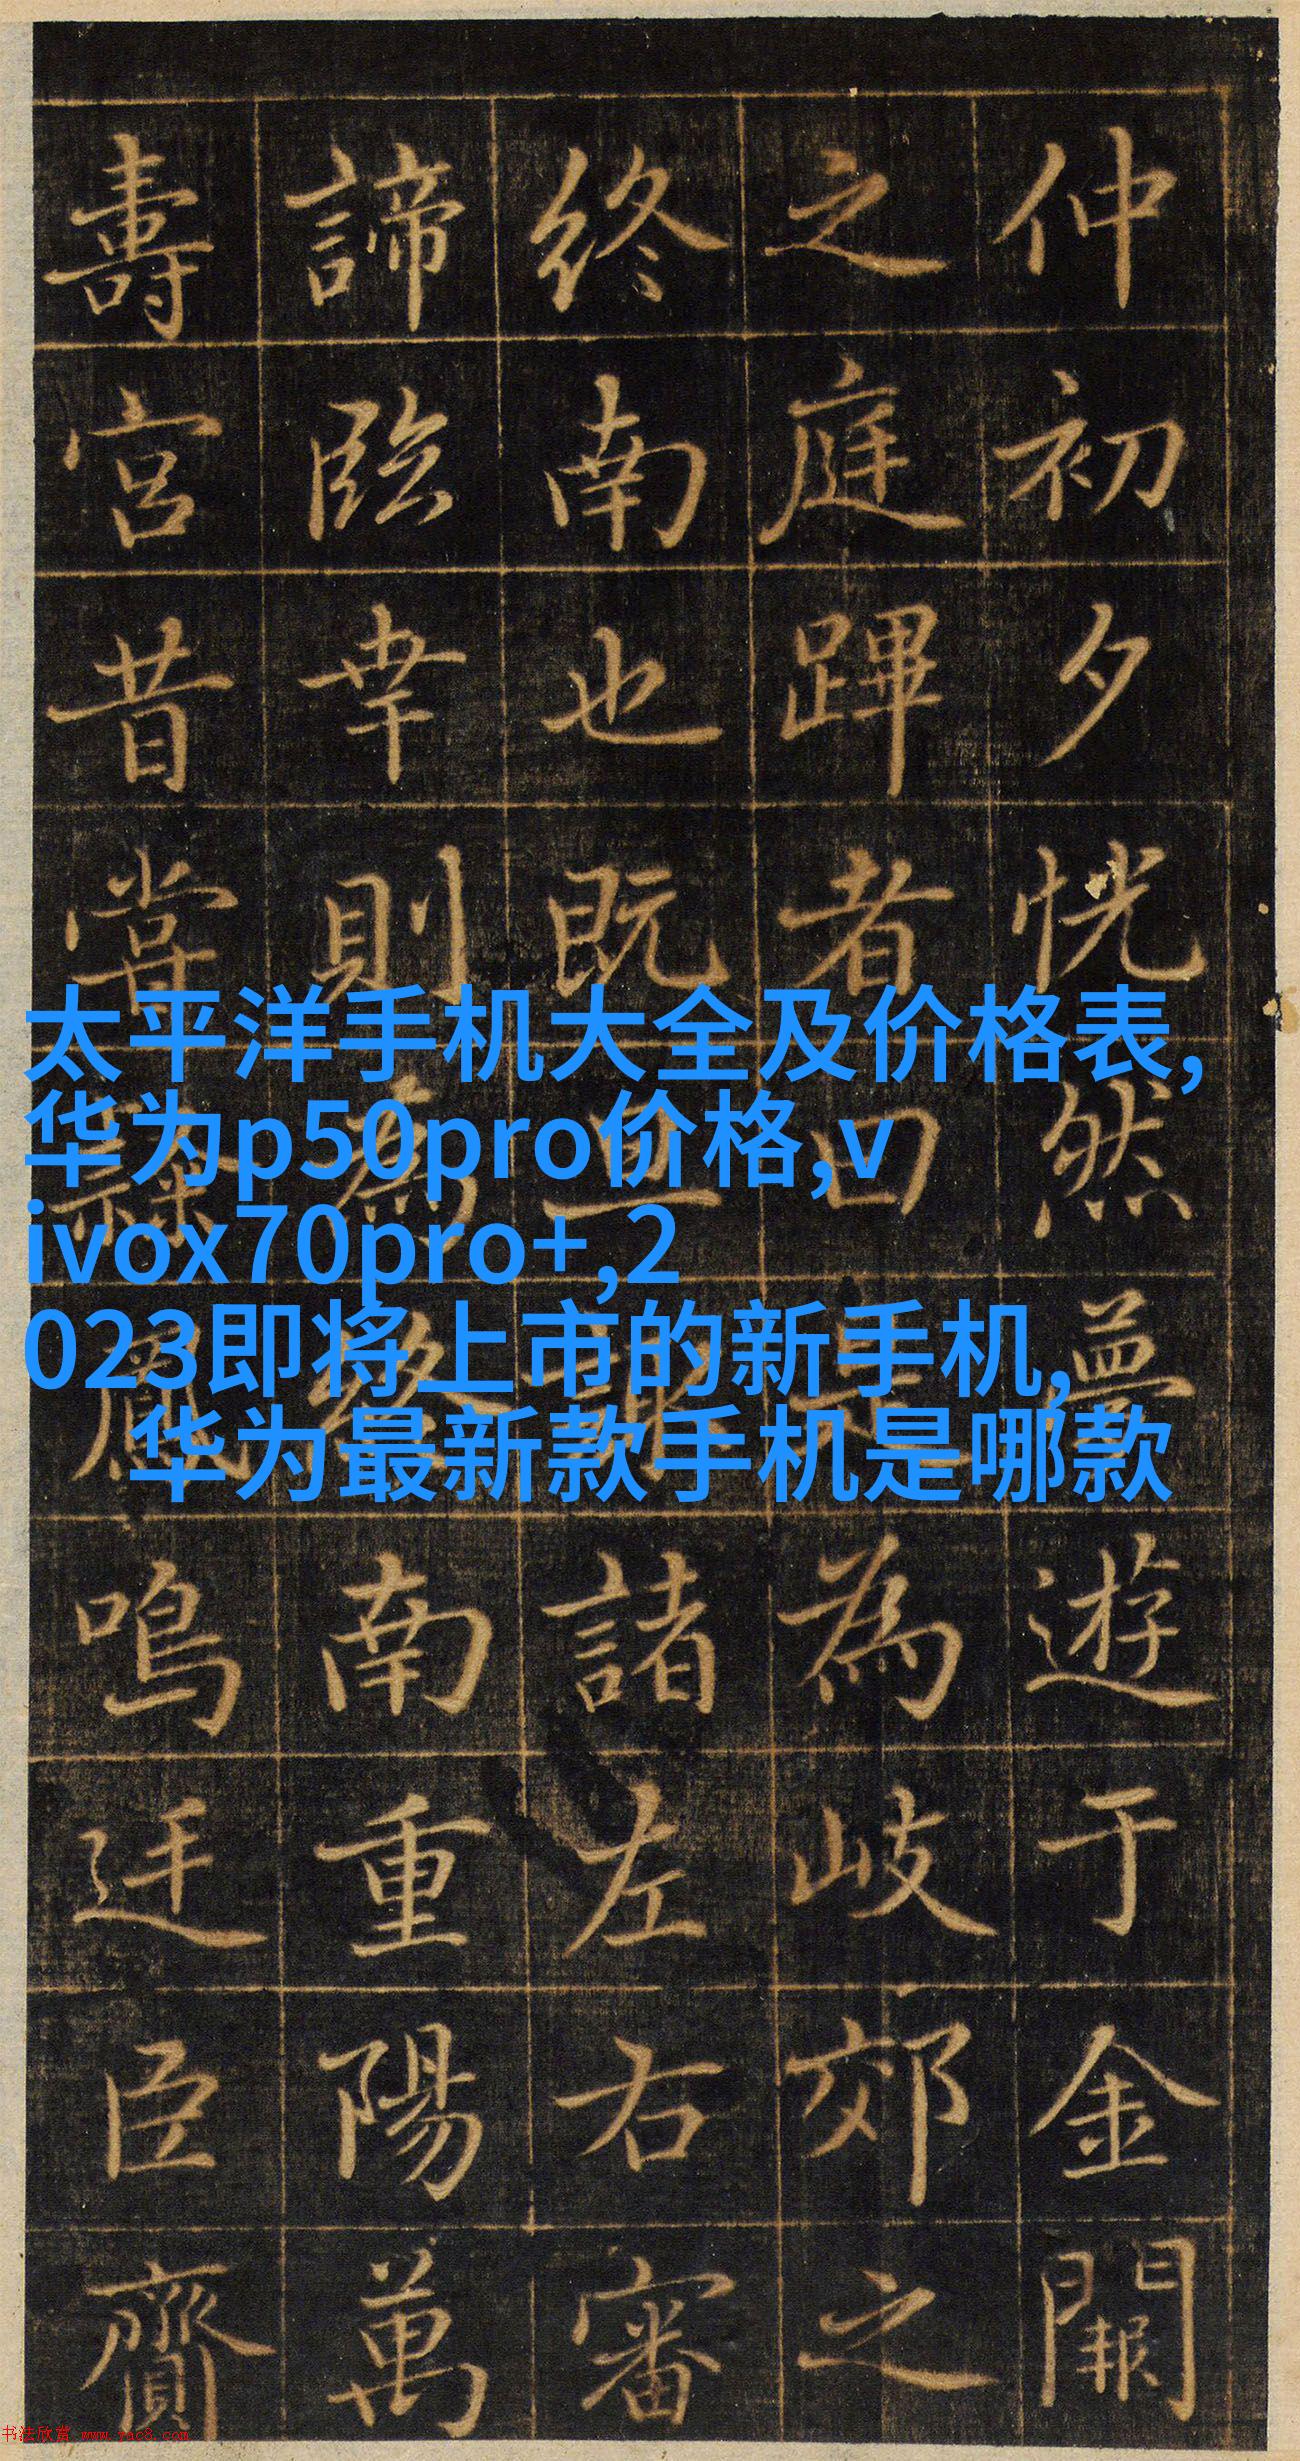 仲初夕恍然夢遊于金闕
之庭蹕者曰為岐郊之
終南也既諸左右審
諦臨幸則為終南重陽萬
壽宮昔嘗隸鳳鳴迋臣齎
太平洋手机大全及价格表,
华为p50pro价格,v
ivox70pro+,2
023即将上市的新手机,
华为最新款手机是哪款
书法欣赏 www.yac8.com